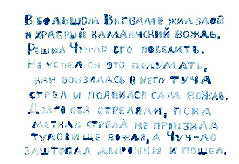 В большом Вигваме жил злой
и храбрый каманчский вождь.
Решил Чуп-ло его победить.
Не успел он это подумать,
как вонзилась в него туча
стрел и появился сам вождь.
Долго они стреляли, пока
меткая стрела не пронзила
туловище вождя, а Чуп-ло
и пошёл.